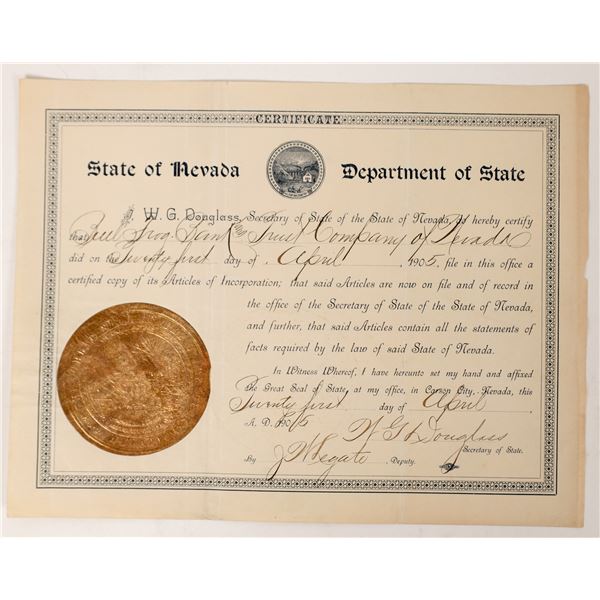 CERTIFICATE
State of Nevada Department of State
I, W. G. Douglass, Secretary of State of the State of Nevada, do hereby certify
that Bull Frog Bank and Trust Company of Nevada
did on the Twenty first day of April, 1905, file in this office a
certified copy of its Articles of Incorporation; that said Articles are now on file and of record in
the office of the Secretary of State of the State of Nevada,
and further, that said Articles contain all the statements of
facts required by the law of said State of Nevada.
In Witness Whereof, I have hereunto set my hand and affixed
the Great Seal of State, at my office, in Carson City, Nevada, this
Twenty first day of April
A. D. 1905
W G Douglass
Secretary of State.
By J W Legate, Deputy.